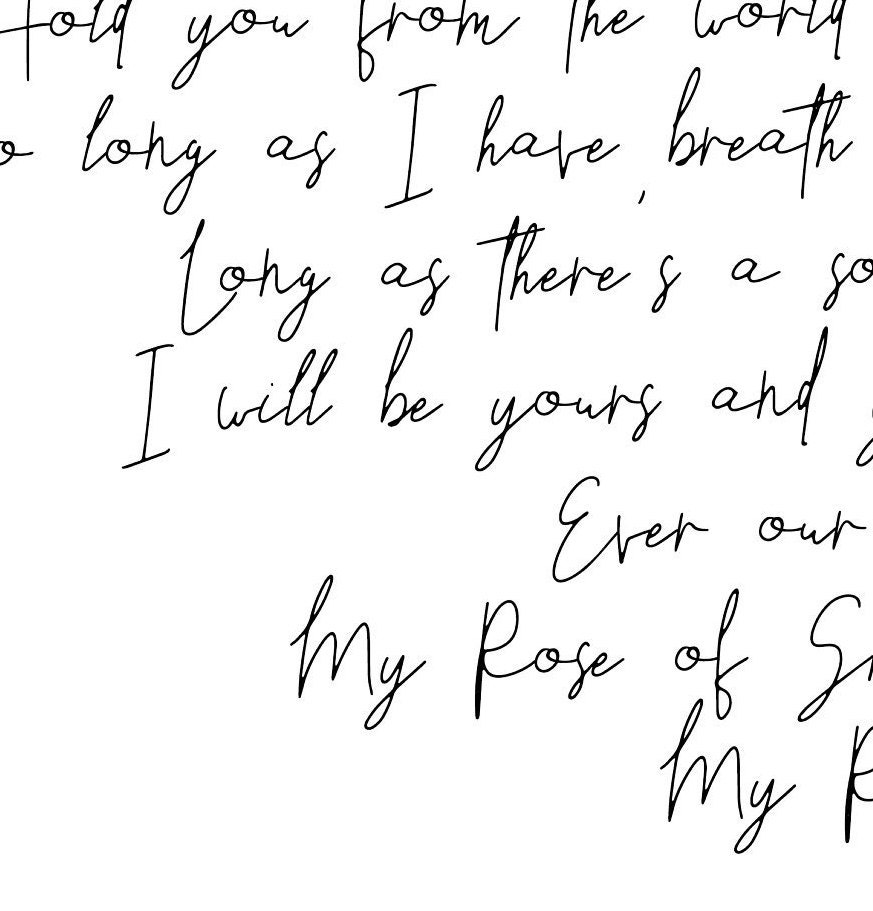 told you from the world
long as I have breath
Long as there's a so
I will be yours and
Ever our
My Rose of S
My R